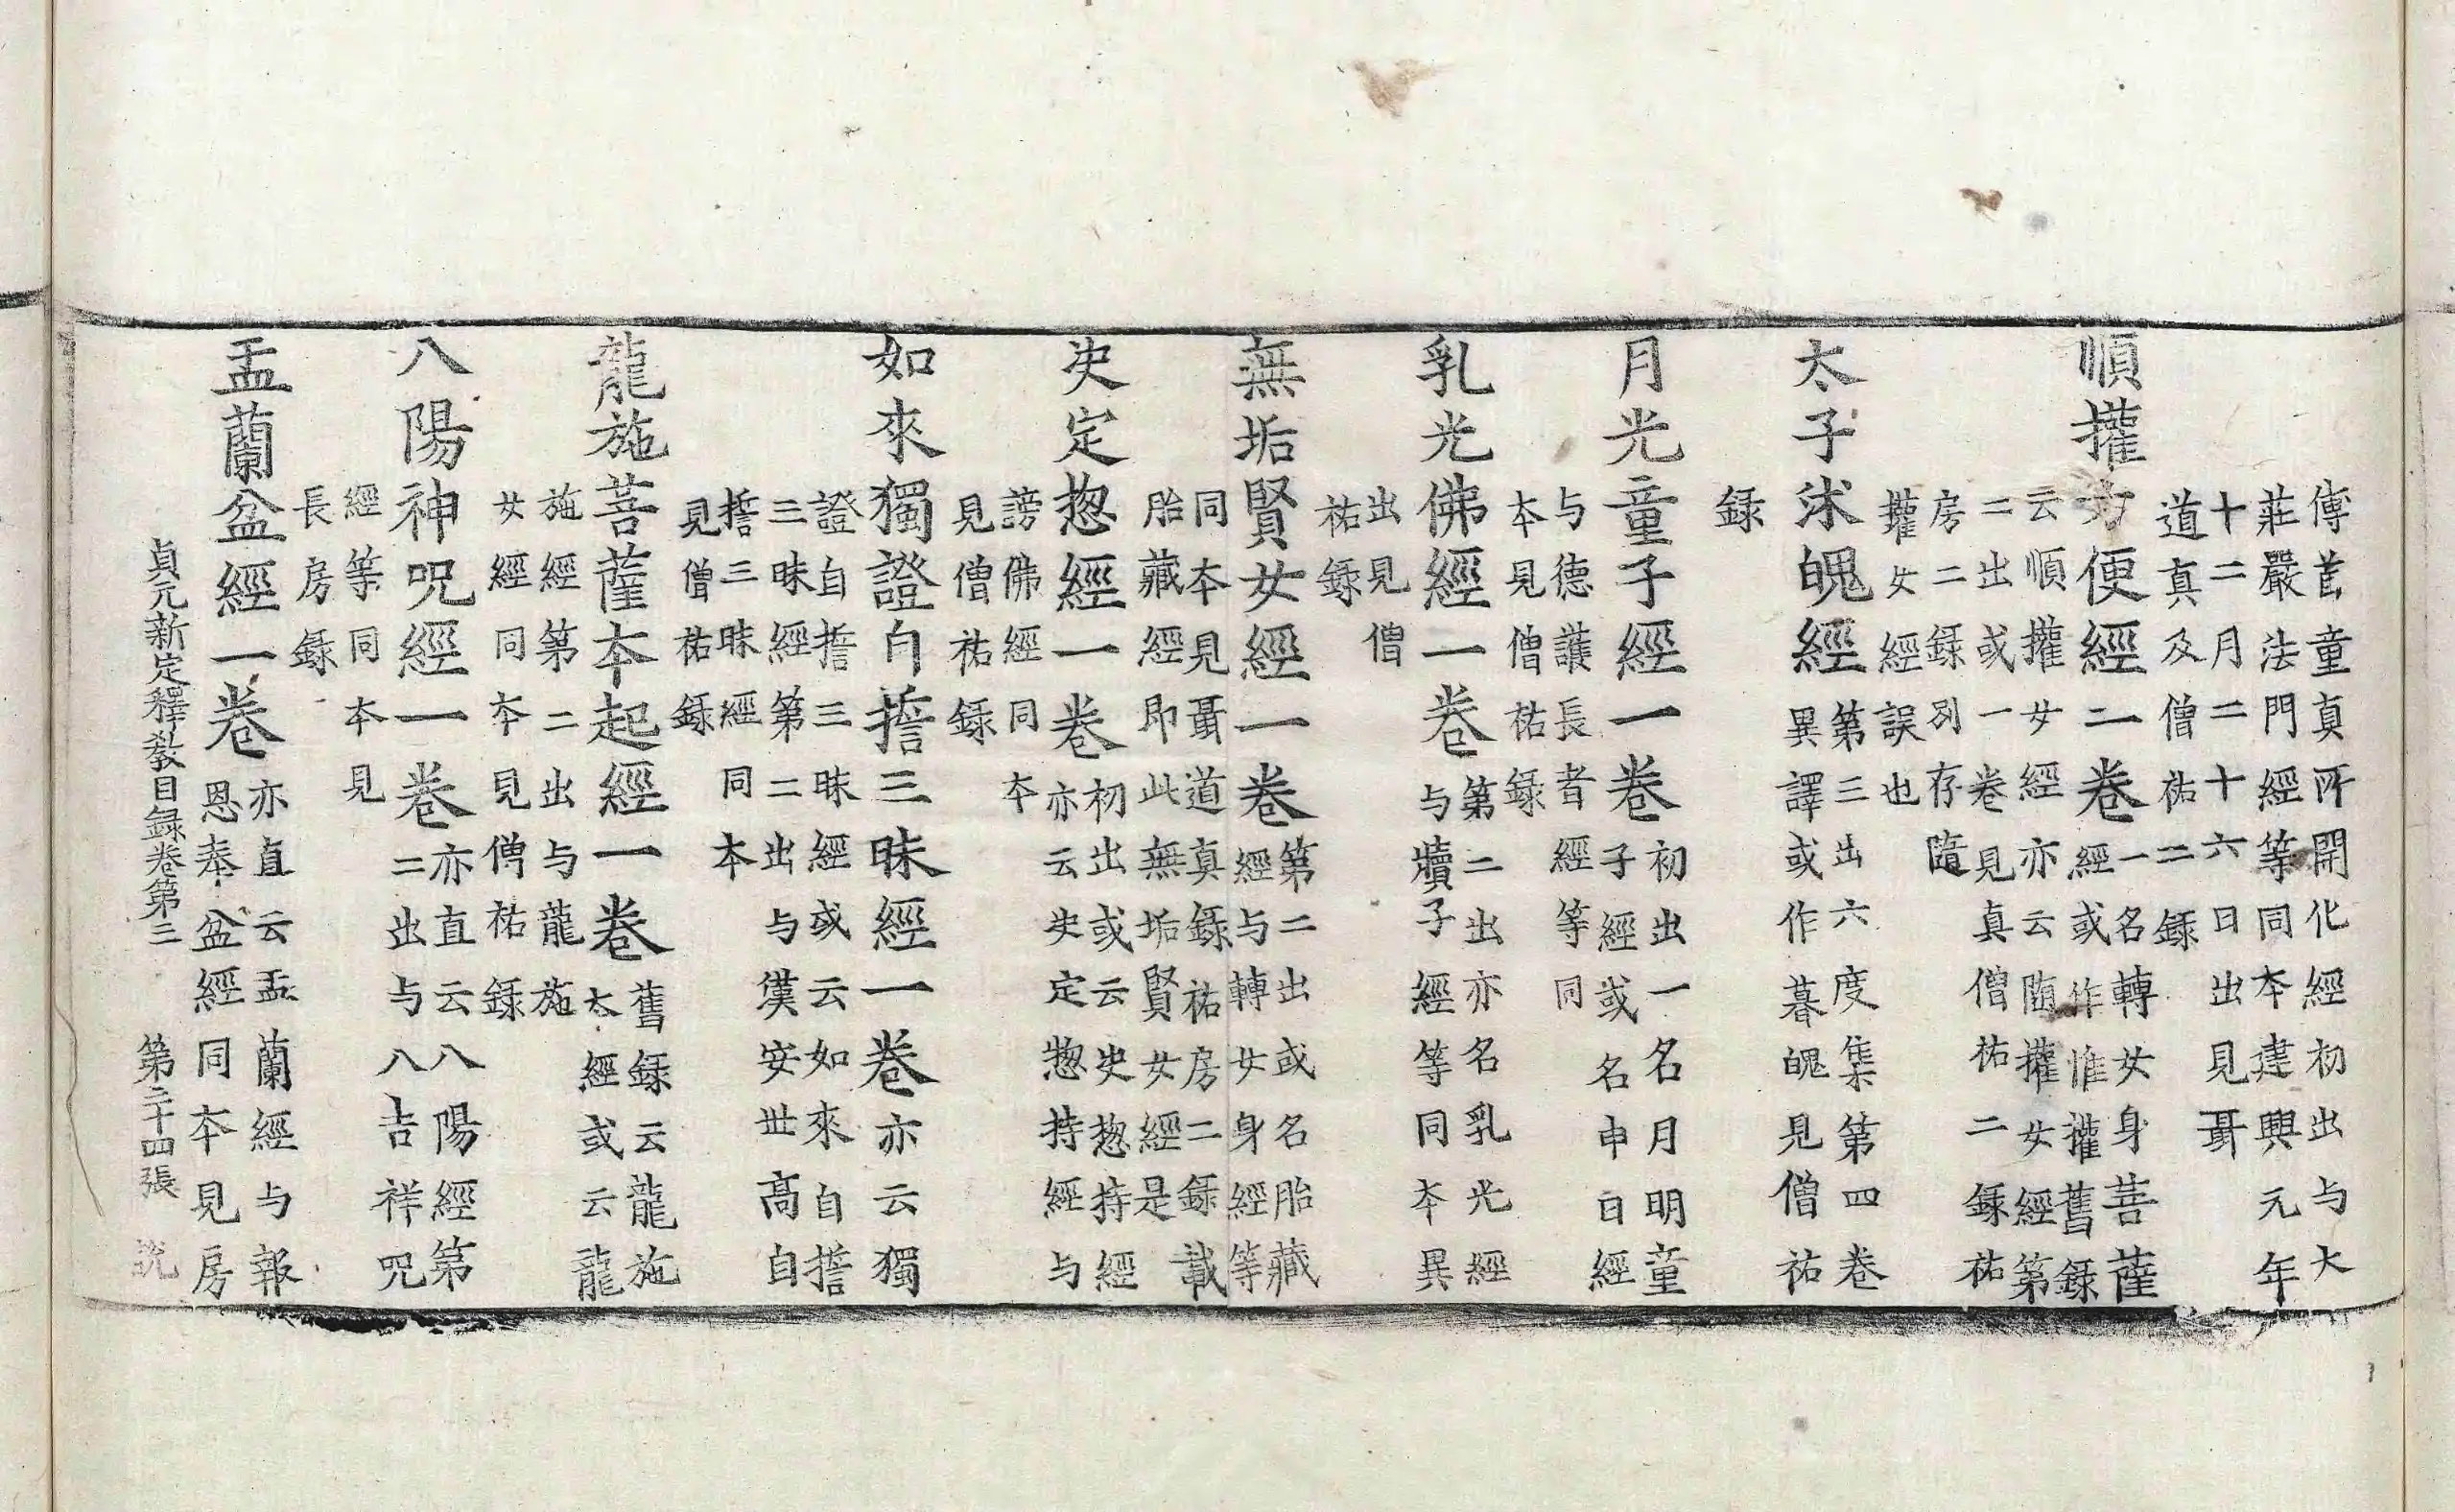 傳首童真所開化經初出与大
莊嚴法門經等同本建興元年
十二月二十六日出見聶
道真及僧祐二錄
順㩲方便經二卷一名轉女身菩薩
經或作惟㩲舊錄
云順㩲女經亦云随㩲女經第
二出或一卷見真僧祐二錄祐
房二錄別存隨
㩲女經誤也
太子沐魄經第三出六度集第四卷
異譯或作暮魄見僧祐
錄
月光童子經一卷初出一名月明童
子經或名申日經
与德護長者經等同
本見僧祐錄
乳光佛經一卷第二出亦名乳光經
与犢子經等同本異
出見僧
祐錄
無垢賢女經一卷第二出或名胎藏
經与轉女身經等
同本見聶道真錄祐房二錄載
胎藏經即此無垢賢女經是
决定揔經一卷初出或云决揔持經
亦云决定惣持經与
謗佛經同本
見僧祐錄
如來獨證自誓三昧經一卷亦云獨
證自誓三昧經或云如來自誓
三昧經第二出与漢安世高自
誓三昧經同本
見僧祐錄
龍施菩薩本起經一卷舊錄云龍施
本經或云龍
施經第二出与龍施
女經同本見僧祐錄
八陽神呪經一卷亦直云八陽經第
二出与八吉祥呪
經等同本見
長房錄
盂蘭盆經一卷亦直云盂蘭經与報
恩奉盆經同本見房
貞元新定釋教目録卷第三　第二十四張　説